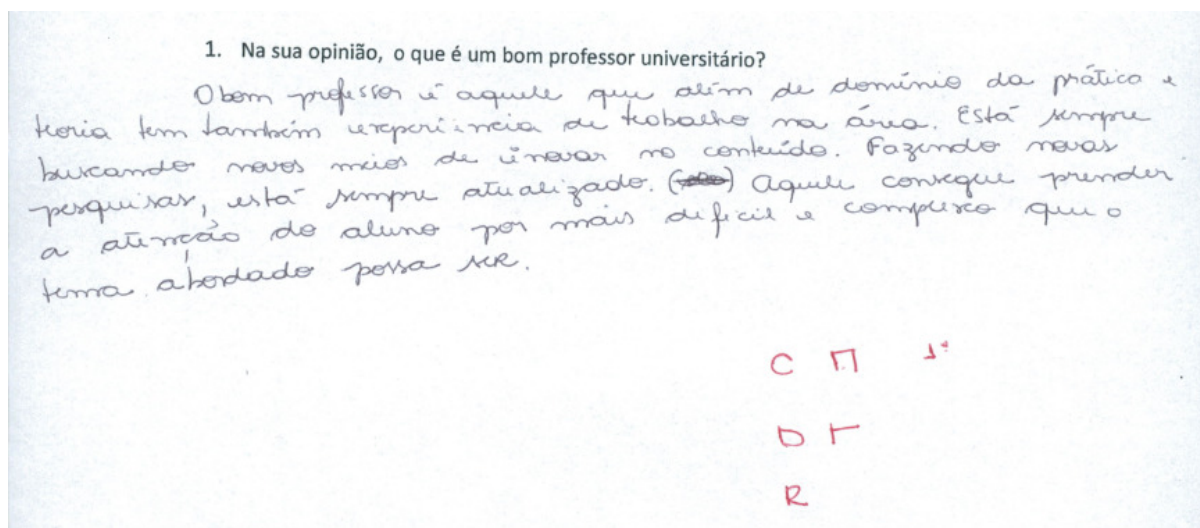 1. Na sua opinião, o que é um bom professor universitário?
O bom professor é aquele que além de domínio da prática e
teoria tem também experiência de trabalho na área. Está sempre
buscando novos meios de inovar no conteúdo. Fazendo novas
pesquisas, está sempre atualizado. () Aquele consegue prender
a atenção do aluno por mais dificil e complexo que o
tema abordado possa ser.
C
D
R